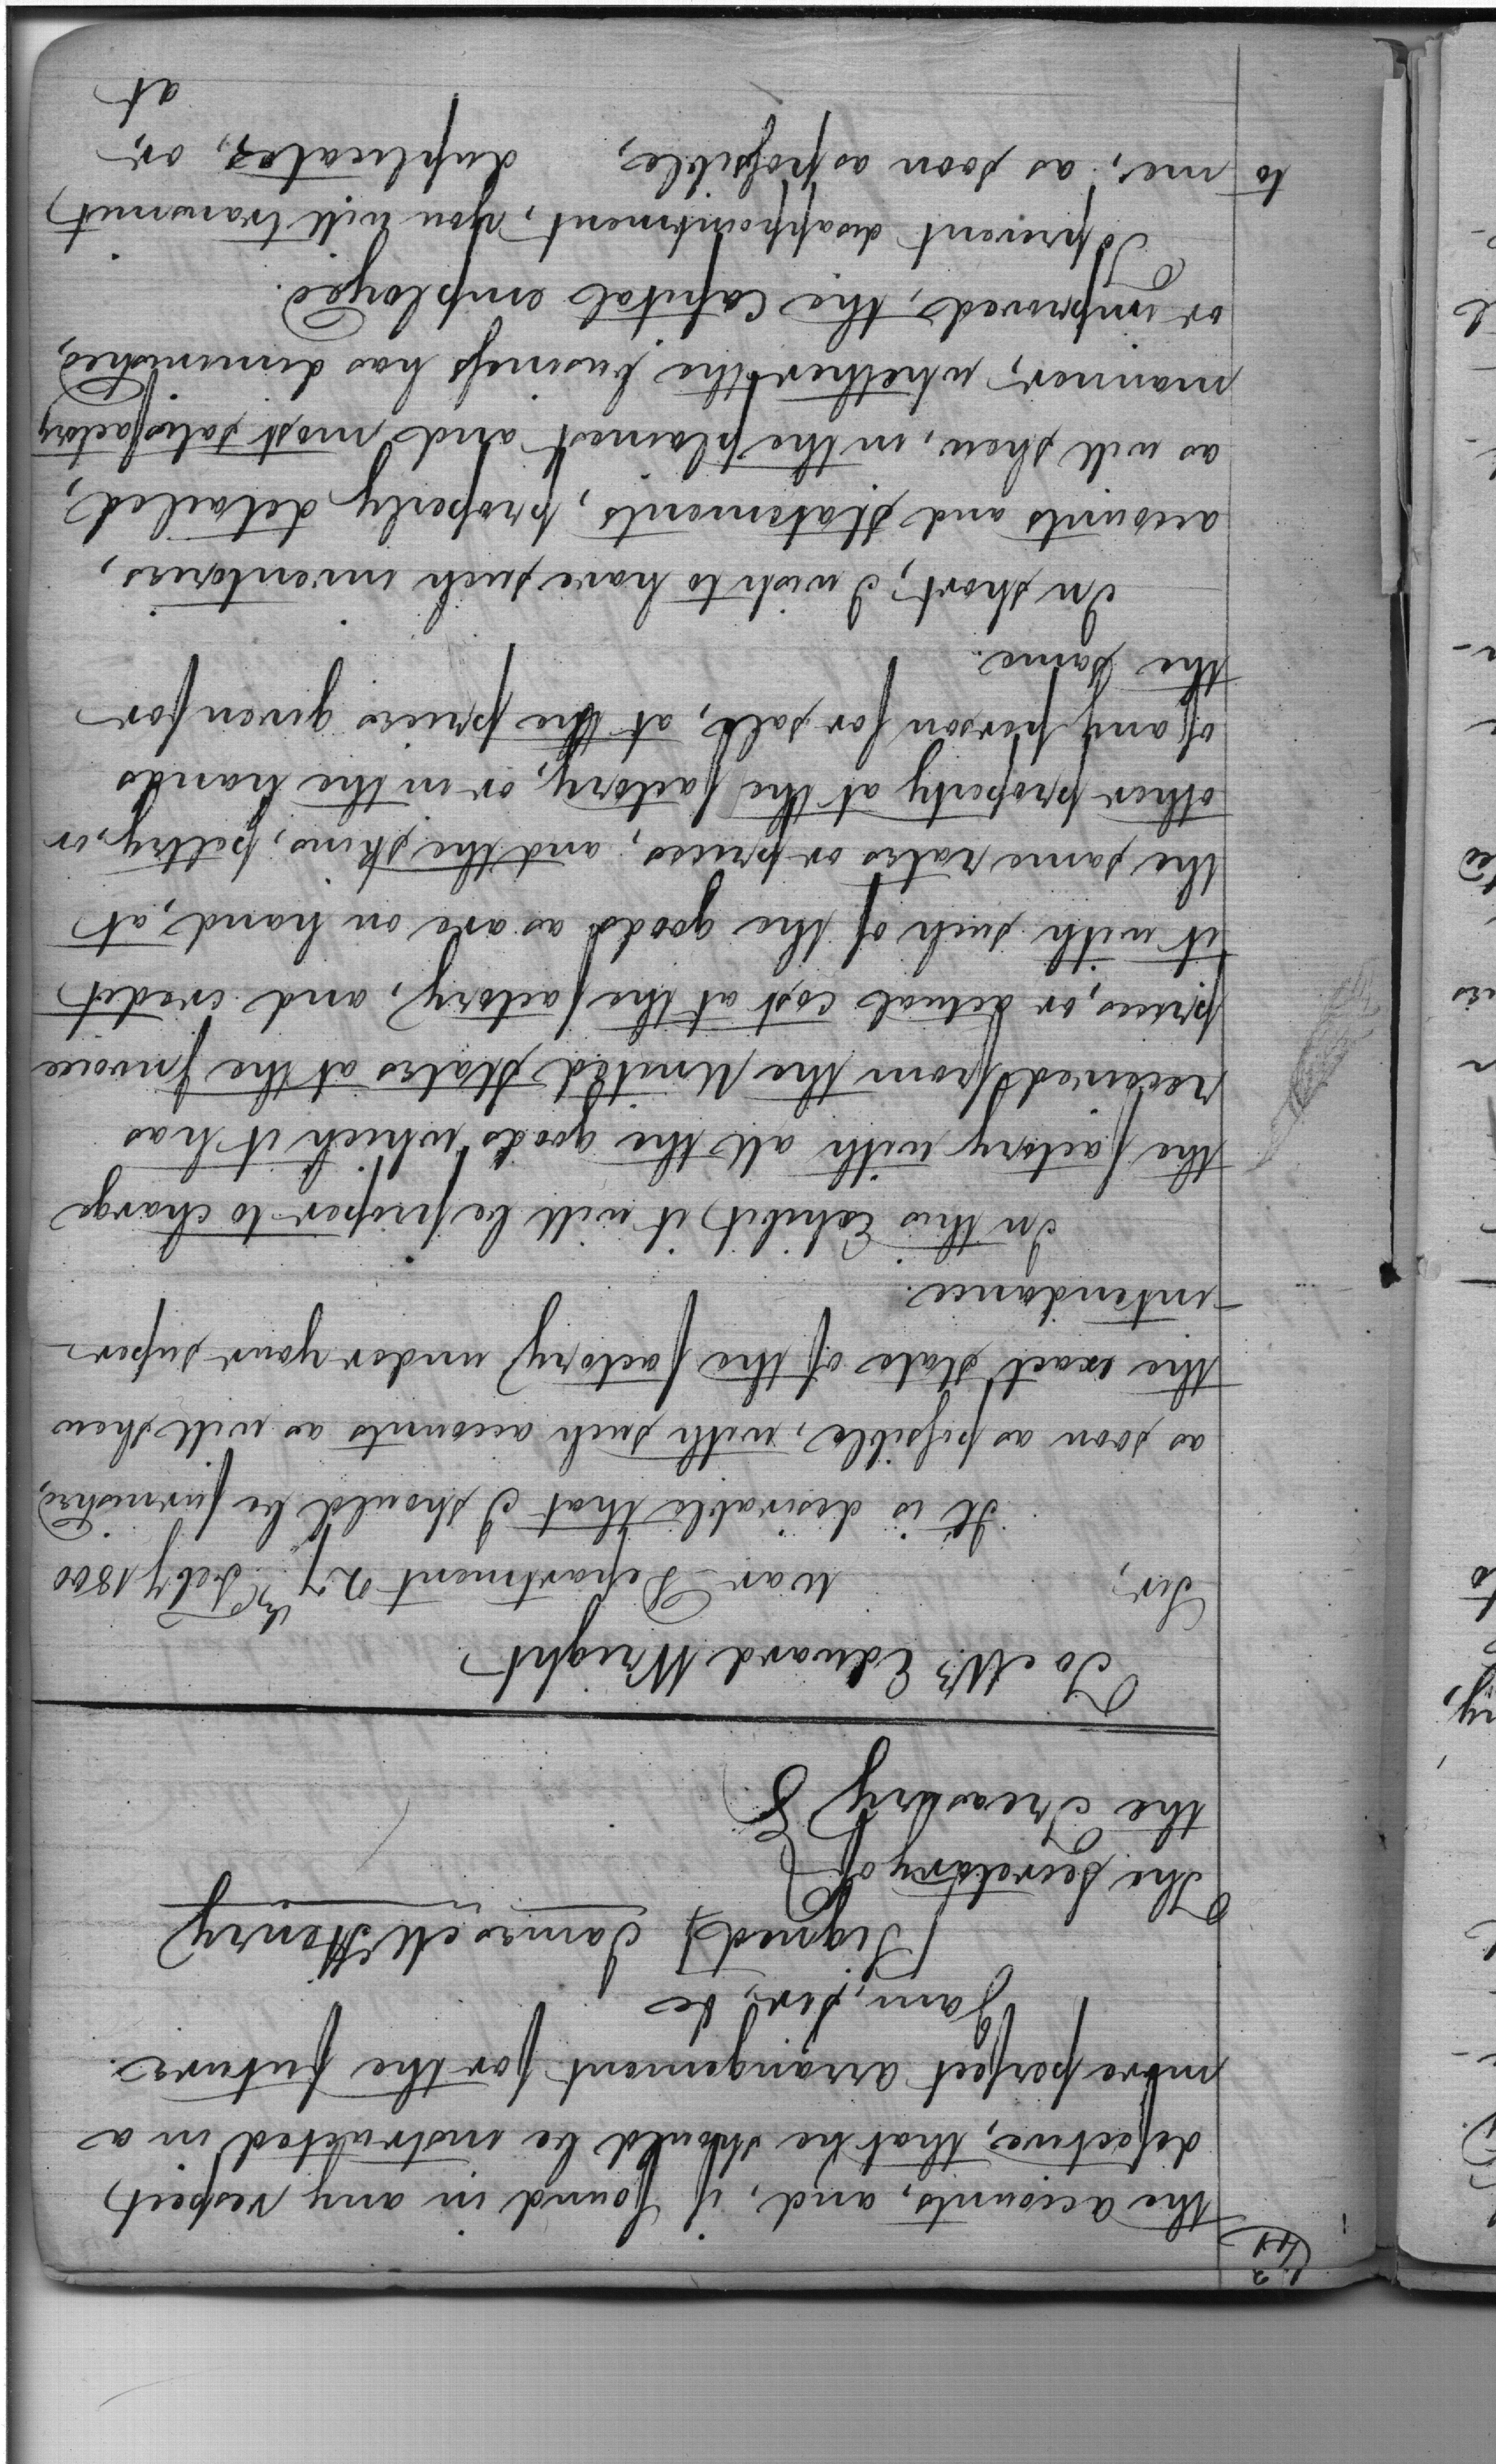 the accounts, and, if found in any respect
defective, that he should be instructed in a
more perfect arrangement for the future.
I am, sir, &c
(Signed) James McHenry
The Secretary of
the Treasury
To Mr. Edward Wright
Sir, War Department 27th Feby 1800
It is desirable that I should be furnished,
as soon as possible, with such accounts as will shew
the exact state of the factory under your super
-intendance.
In this Exhibit it will be proper to charge
the factory with all the goods which it has
received from the United States at the Invoice
prices, or actual cost at the factory, and credit
it with such of the goods as are on hand, at
the same rates or prices, and the skins, peltry, or
other property at the factory, or in the hands
of any person for sale, at the prices given for
the same.
In short, I wish to have such inventories,
accounts and statements, properly detailed,
as will shew, in the plainest and most satisfactory
manner, whether the business has diminished,
or improved, the Capital employed.
To prevent disappointment, you will transmit
to me, as soon as possible, duplicates, or,
at